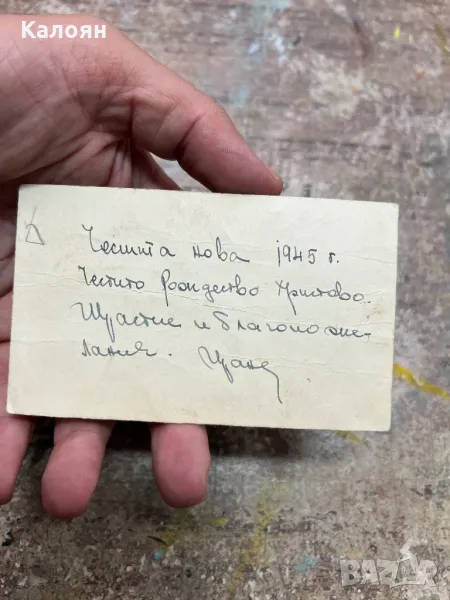 Калоян
Честита нова 1945 г.
Честито рождество Христово.
Щастие и благопоже-
лания.
bazar